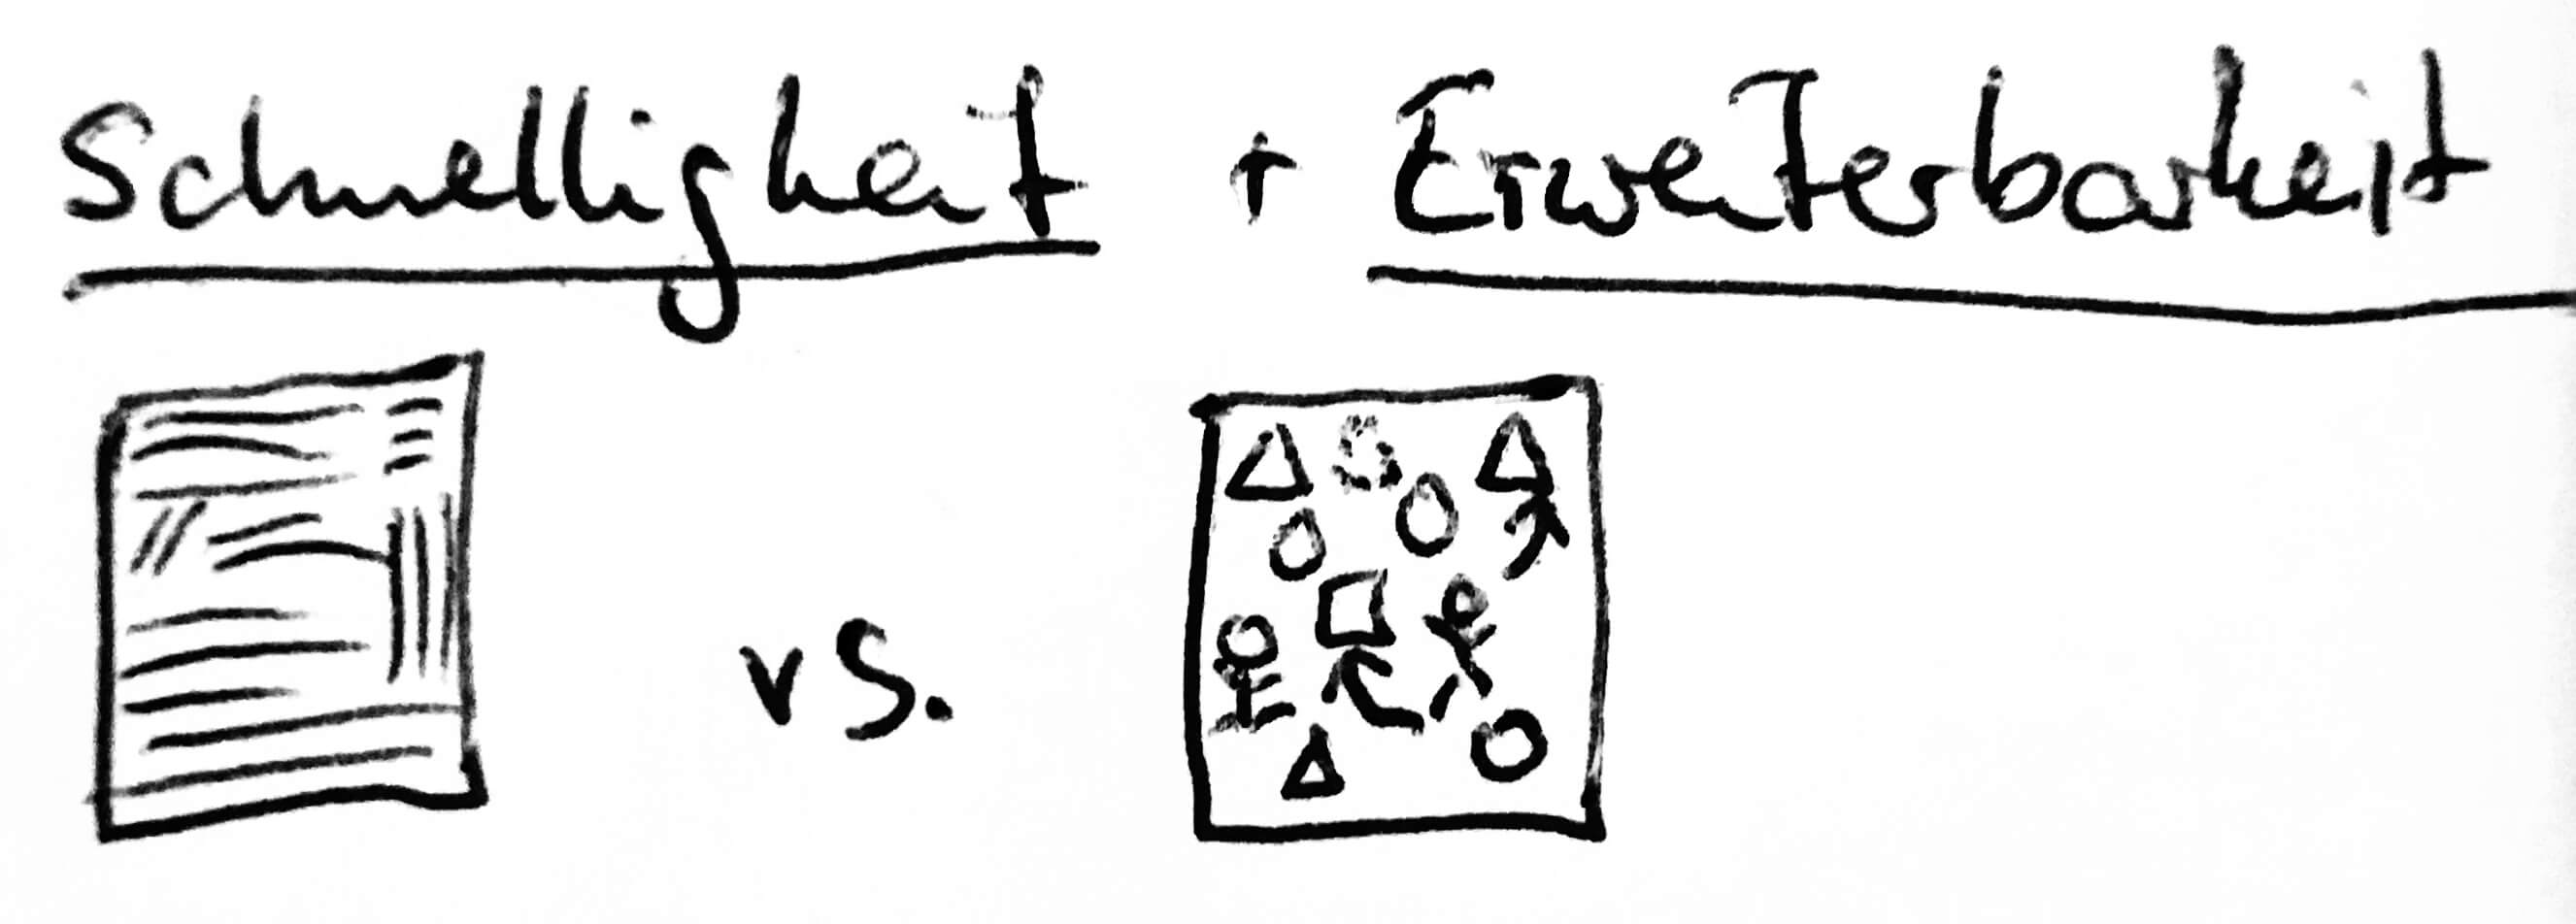 Schnelligkeit + Erweiterbarkeit
vs.